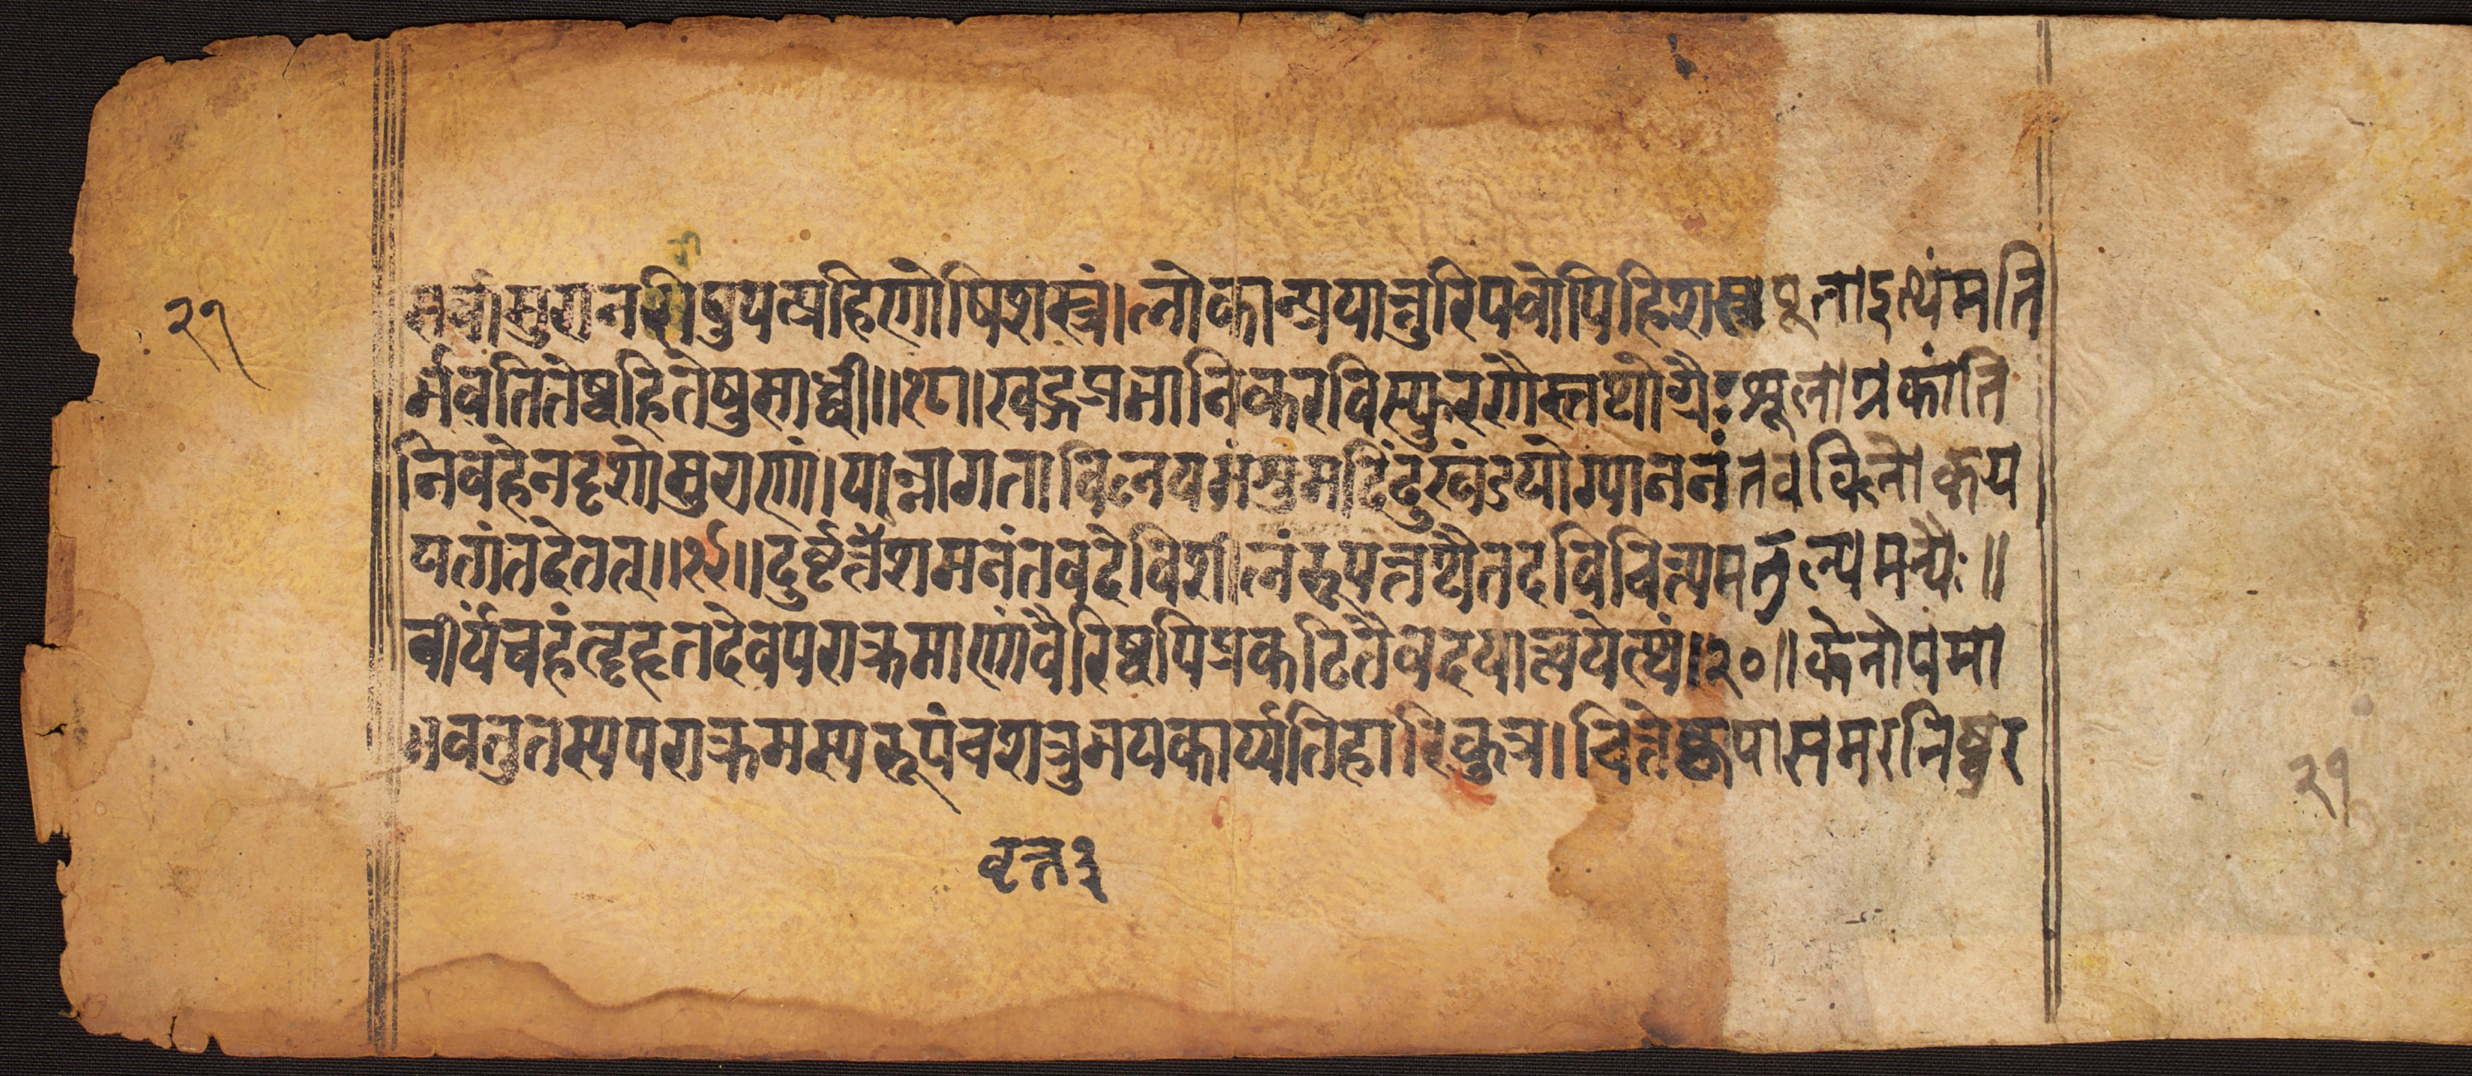 २१
सर्वासुरानरिषुयत्प्रहिणोषिशस्त्रं।लोकान्प्रयान्तुरिपवोपिहिशस्त्रपूताऽत्थंमति
र्भवतितेष्वहितेषुसाध्वी॥१८॥खड्गप्रभानिकरविस्फुरणैस्तथोग्रैःशूलाग्रकांति
निवहेनदृशोसुराणां।यान्नागताविलयमंशुमदिंदुखंडयोग्याननंतवविलोकय
यतांतदेतत्॥१९॥दुर्वृत्तवृत्तशमनंतवदेविशीलंरूपंतथैतदविचिंत्यमतुल्यमन्यैः॥
वीर्यंचहंतृहृतदेवपराक्रमाणांवैरिष्वपिप्रकटितैवदयात्वयेत्थं॥२०॥केनोपमा
भवतुतस्यपराक्रमस्यरूपंचशत्रुभयकार्य्यतिहारिकुत्र।चित्तेकृपासमरनिष्ठुर
वृत्त३
२१